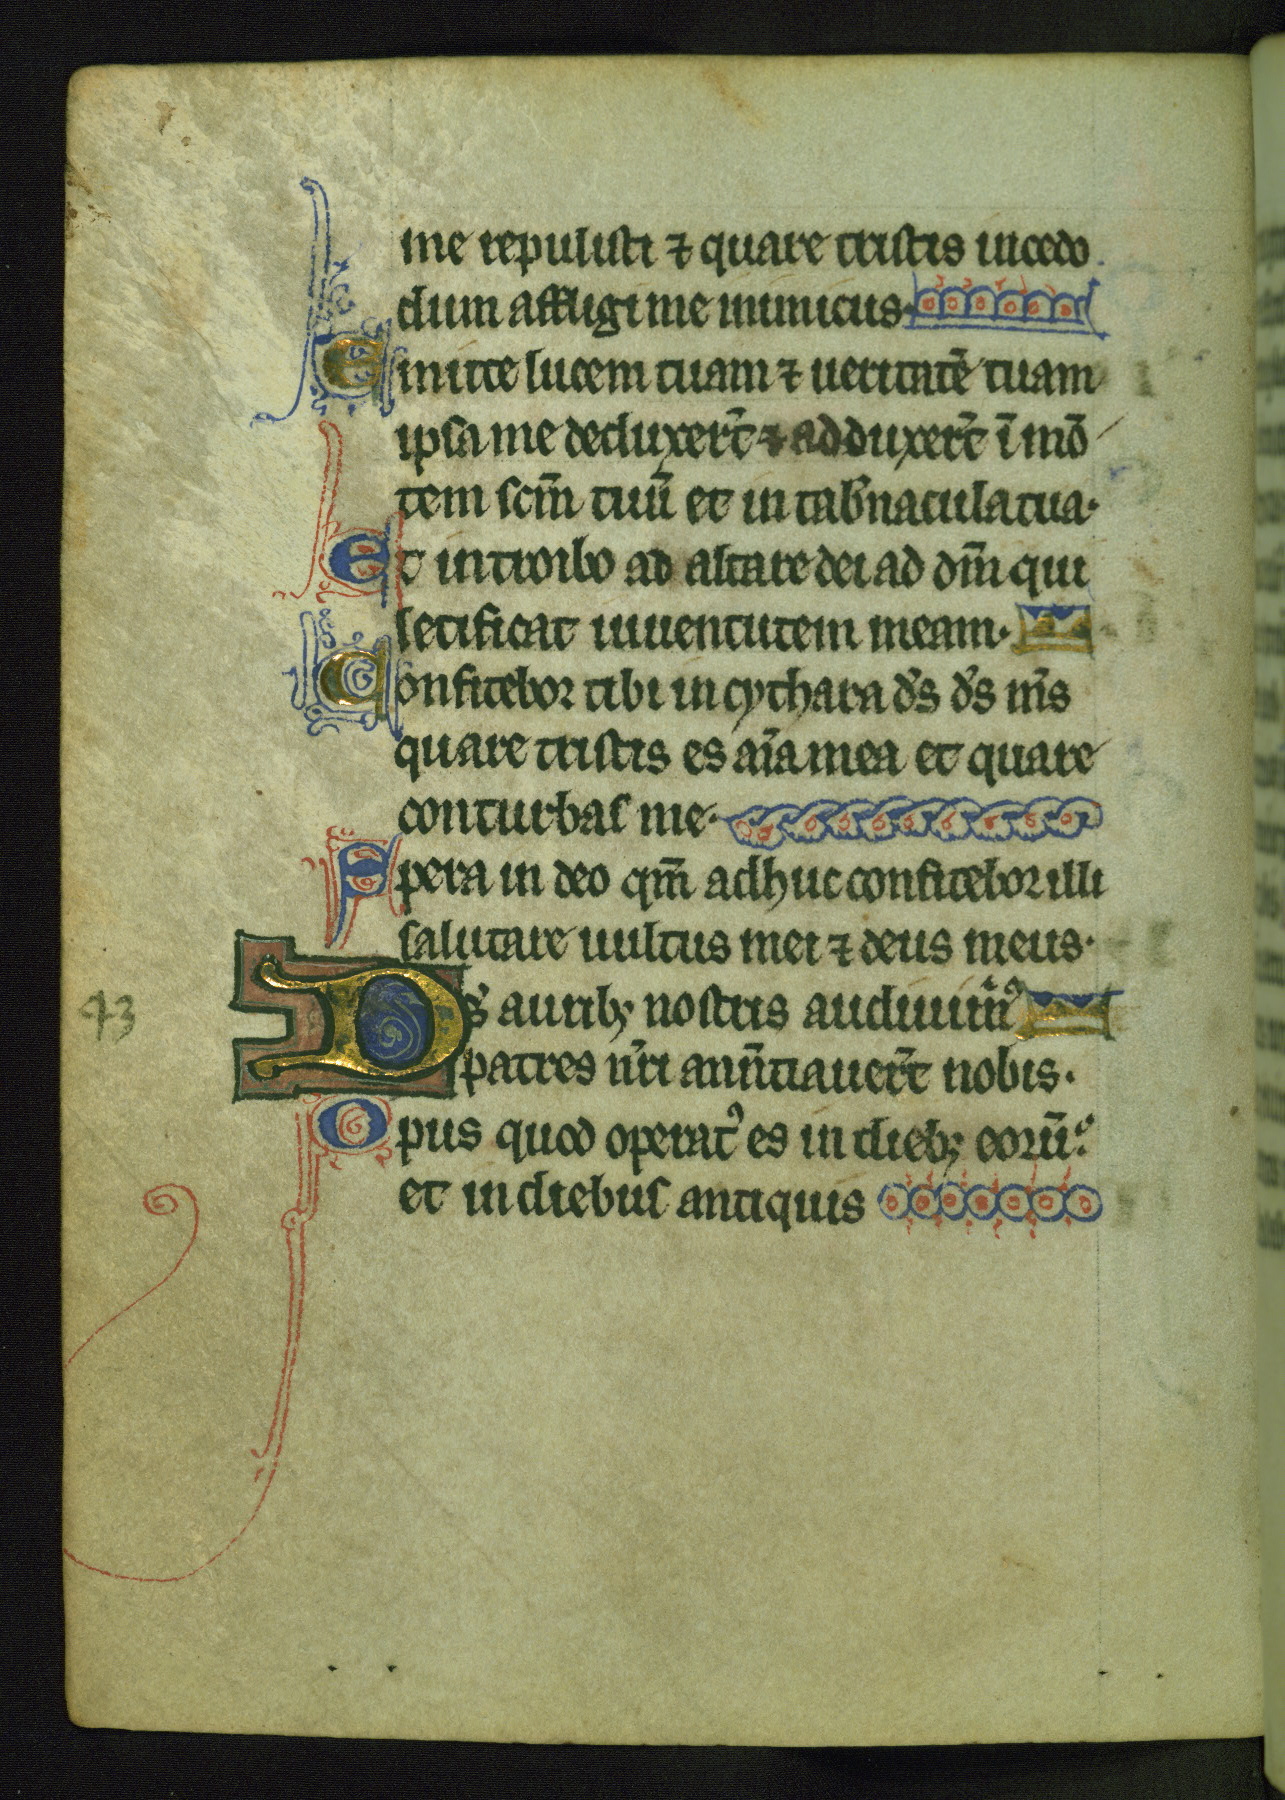 me repulisti ⁊ quare tristis incedo
dum affligi me inimicus·
Emitte lucem tuam ⁊ ueritatē tuam
ipsa me deduxer̄t ⁊ adduxer̄t ī mō
tem scm̄ tuū et in tab̓nacula tua·
Et introibo ad altare dei ad dm̄ qui
letificat iuuentutem meam·
Confitebor tibi in cythara ds̄ ds̄ ms̄
quare tristis es aīa mea et quare
conturbas me·
Spera in deo qm̄ adhuc confitebor illi
salutare uultus mei ⁊ deus meus·
43
Ds̄ aurib; nostris audiuim̄ꝰ
patres nr̄i anūtiauer̄t nobis·
Opus quod operatꝰ es in dieb; eorū:
et in diebus antiquis